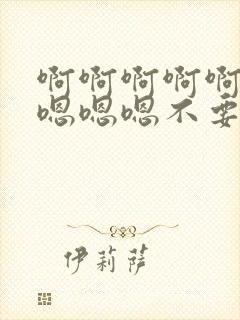 啊啊啊啊啊
嗯嗯嗯不要
伊莉萨